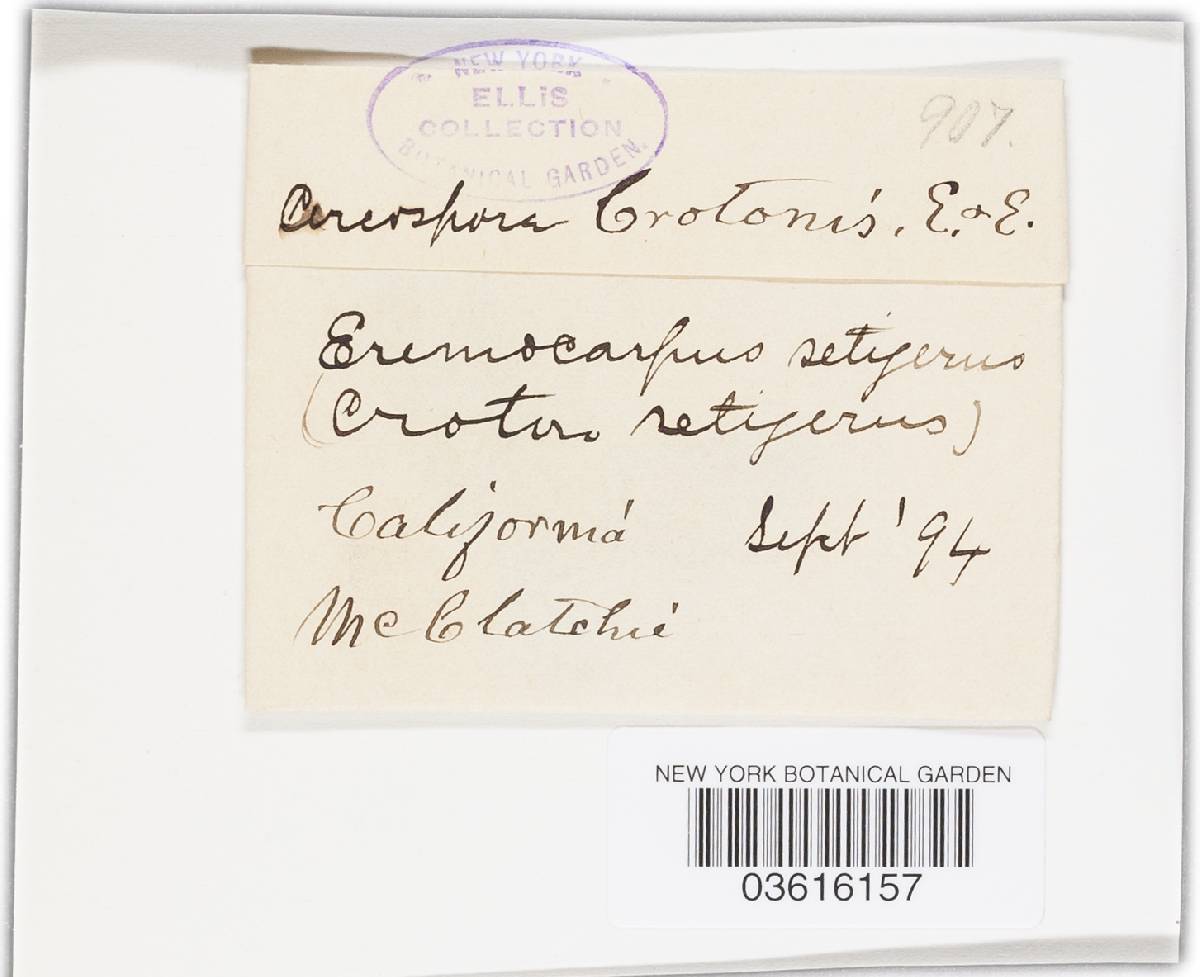 NEW YORK
ELLIS
COLLECTION
BOTANICAL GARDEN.
907.
Cercospora Crotonis, E. & E.
Eremocarpus setigerus
(Croton setigerus)
California Sept '94
McClatchie
NEW YORK BOTANICAL GARDEN
03616157